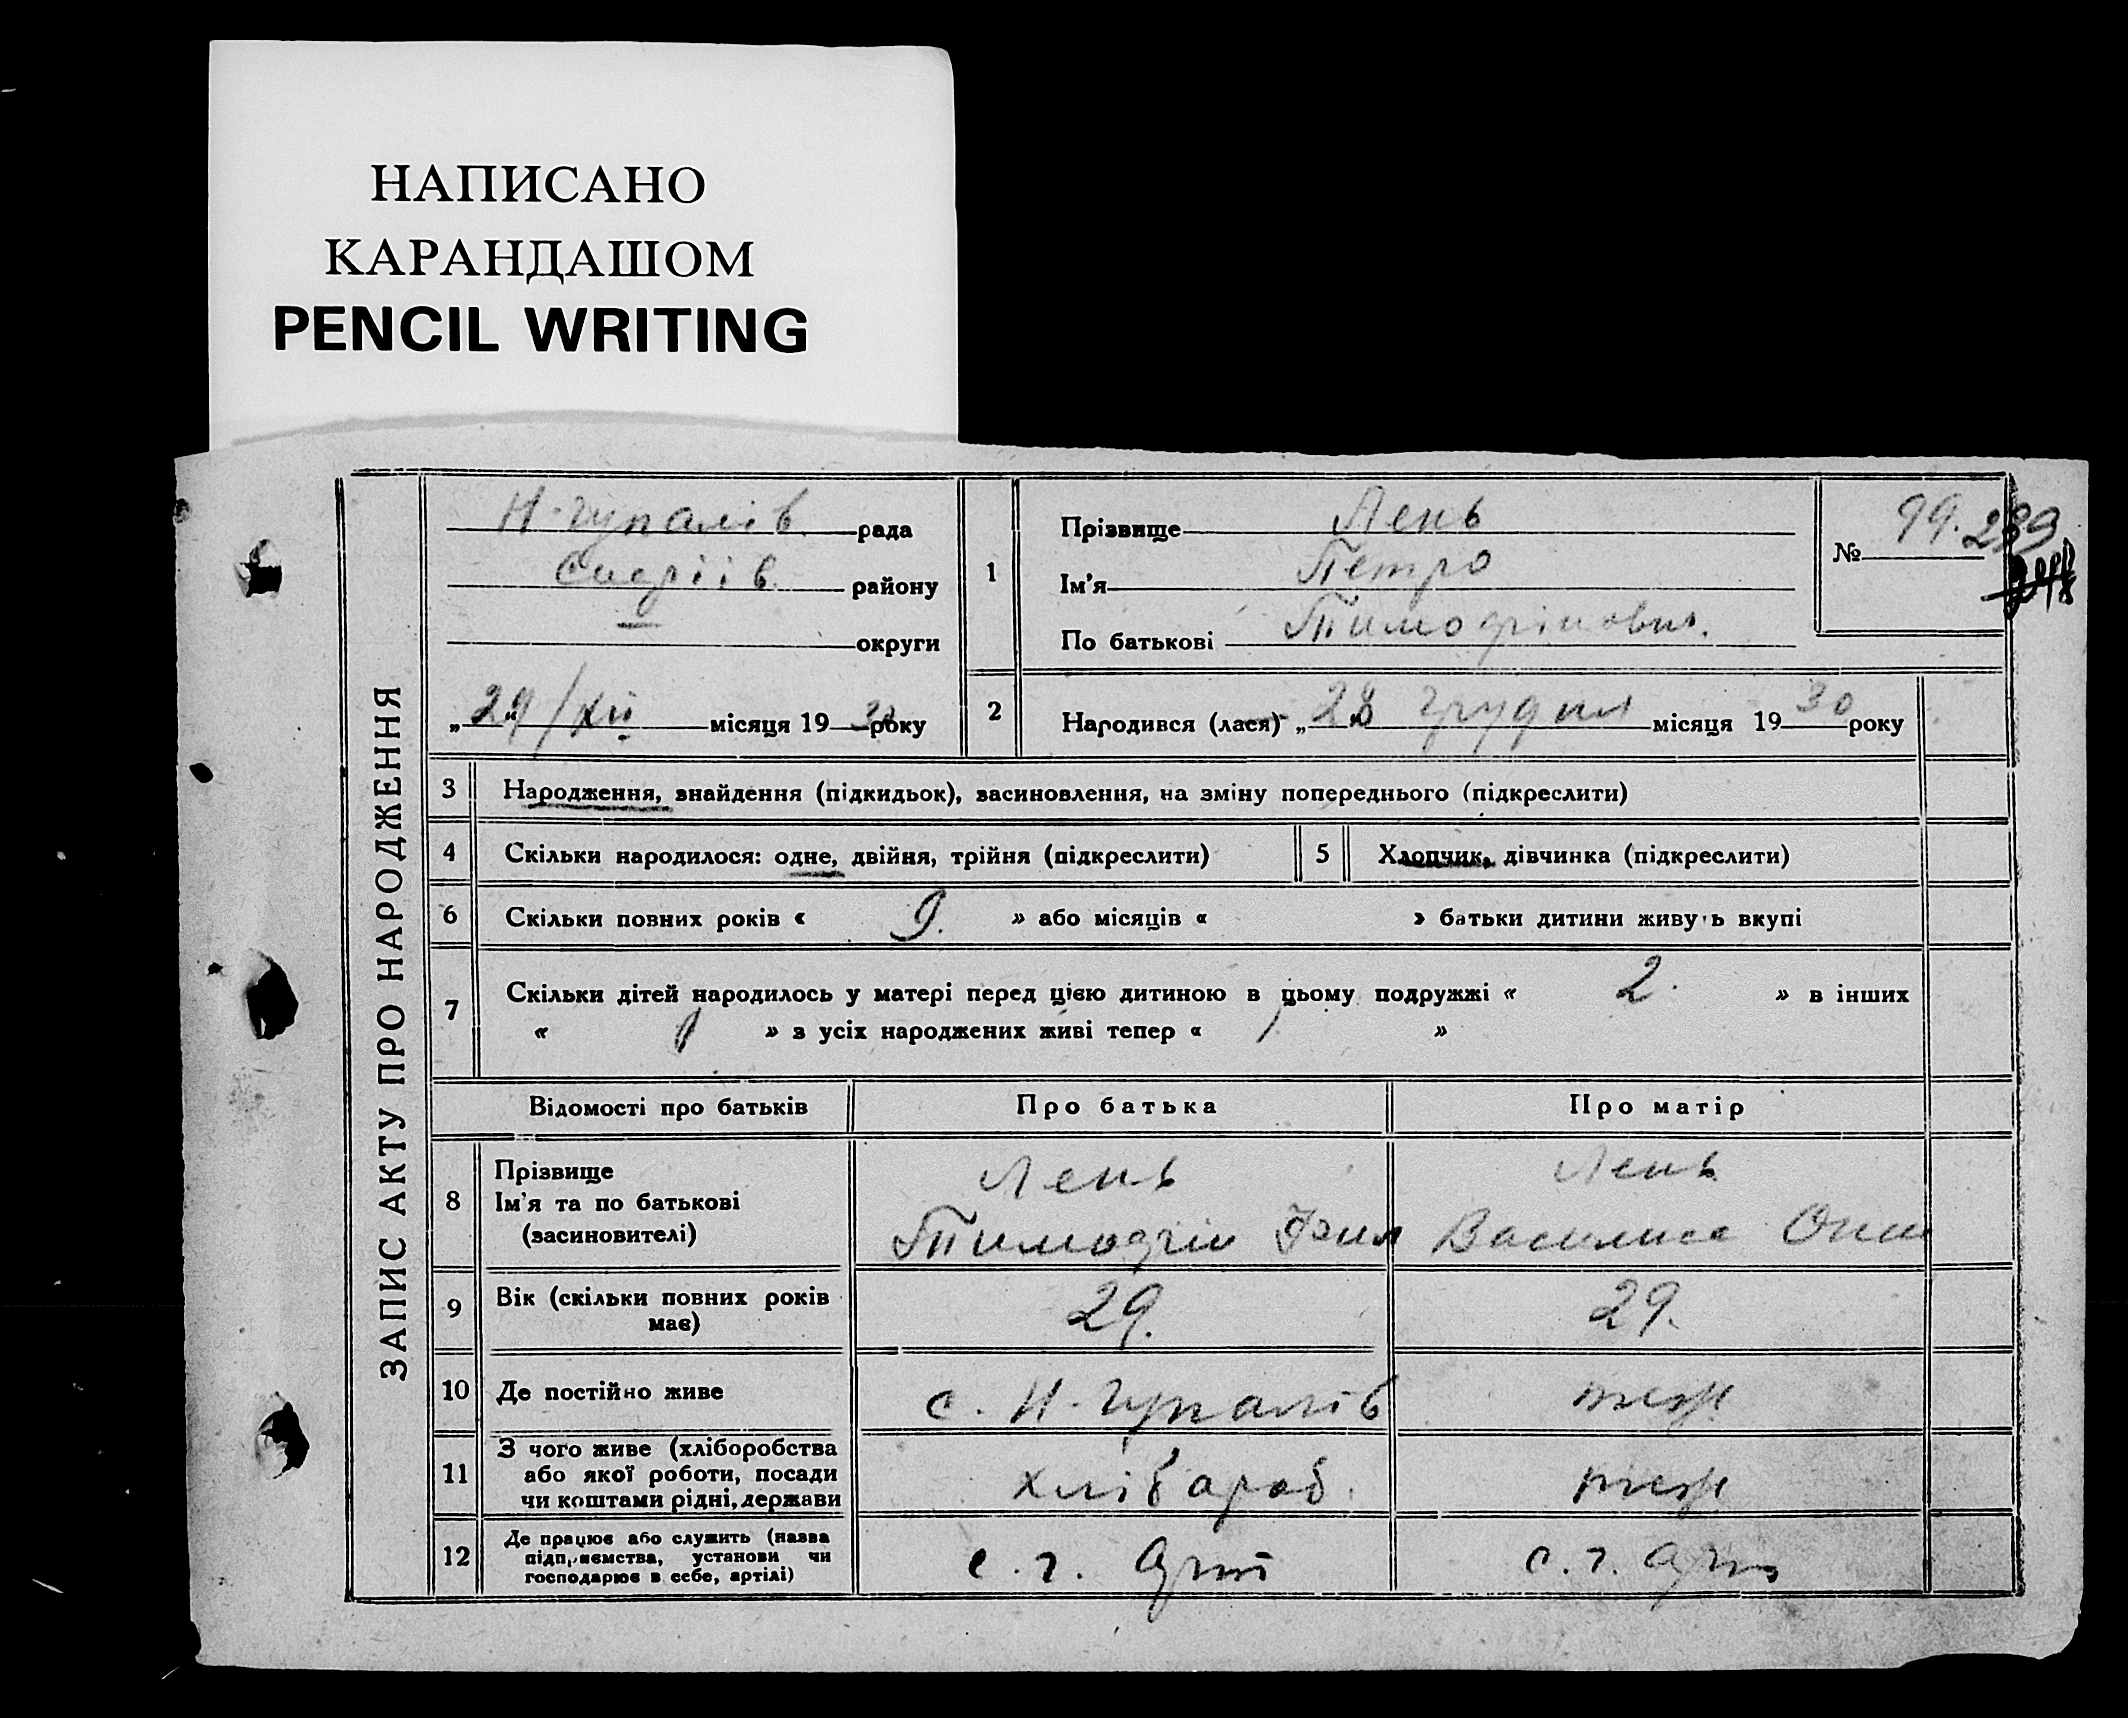 НАПИСАНО
КАРАНДАШОМ
PENCIL WRITING
ЗАПИС АКТУ ПРО НАРОДЖЕННЯ
рада
району
округи
„29“/XII місяця 1930 року
1
Прізвище Лень
Ім'я Петро
По батькові
№ 99. 289
2
Народився (лася) „28 грудня місяця 1930 року
3 Народження, знайдення (підкидьок), засиновлення, на зміну попереднього (підкреслити)
4 Скільки народилося: одне, двійня, трійня (підкреслити)
5 Хлопчик, дівчинка (підкреслити)
6 Скільки повних років « 9. » або місяців « » батьки дитини живуть вкупі
7 Скільки дітей народилось у матері перед цією дитиною в цьому подружжі « 2. » в інших
« » з усіх народжених живі тепер « »
Відомості про батьків
Про батька
Про матір
8 Прізвище
Ім'я та по батькові
(засиновителі)
Лень
Тимофій
Лень
Василиса
9 Вік (скільки повних років
має)
29.
29.
10 Де постійно живе
с. Н.
теж
11 З чого живе (хліборобства
або якої роботи, посади
чи коштами рідні, держави
хлібароб.
теж
12 Де працює або служить (назва
підприємства, установи чи
господарює в себе, артілі)
с. г. арт
с. г. арт